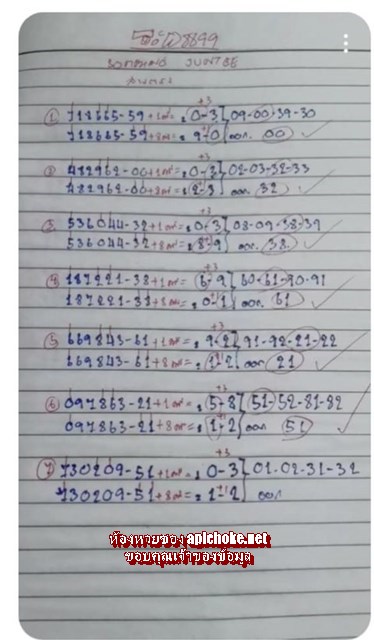 ① 718665-59+1 = 0-3 09-00-39-30
718665-59+8 = 9-0 ออก. 00
② 482962-00+1 = 0-3 02-03-32-33
482962-00+8 = 2-3 ออก. 32
③ 536044-32+1 = 0-3 08-09-38-39
536044-32+8 = 8-9 ออก. 38
④ 187221-38+1 = 6-9 60-61-90-91
187221-38+8 = 0-1 ออก. 61
⑤ 669843-61+1 = 9-2 91-92-21-22
669843-61+8 = 1-2 ออก 21
⑥ 097863-21+1 = 5-8 51-52-81-82
097863-21+8 = 1-2 ออก 51
⑦ 730209-51+1 = 0-3 01-02-31-32
730209-51+8 = 1-2 ออก
ห้องหวยซอง apichoke.net
ขอบคุณเจ้าของข้อมูล